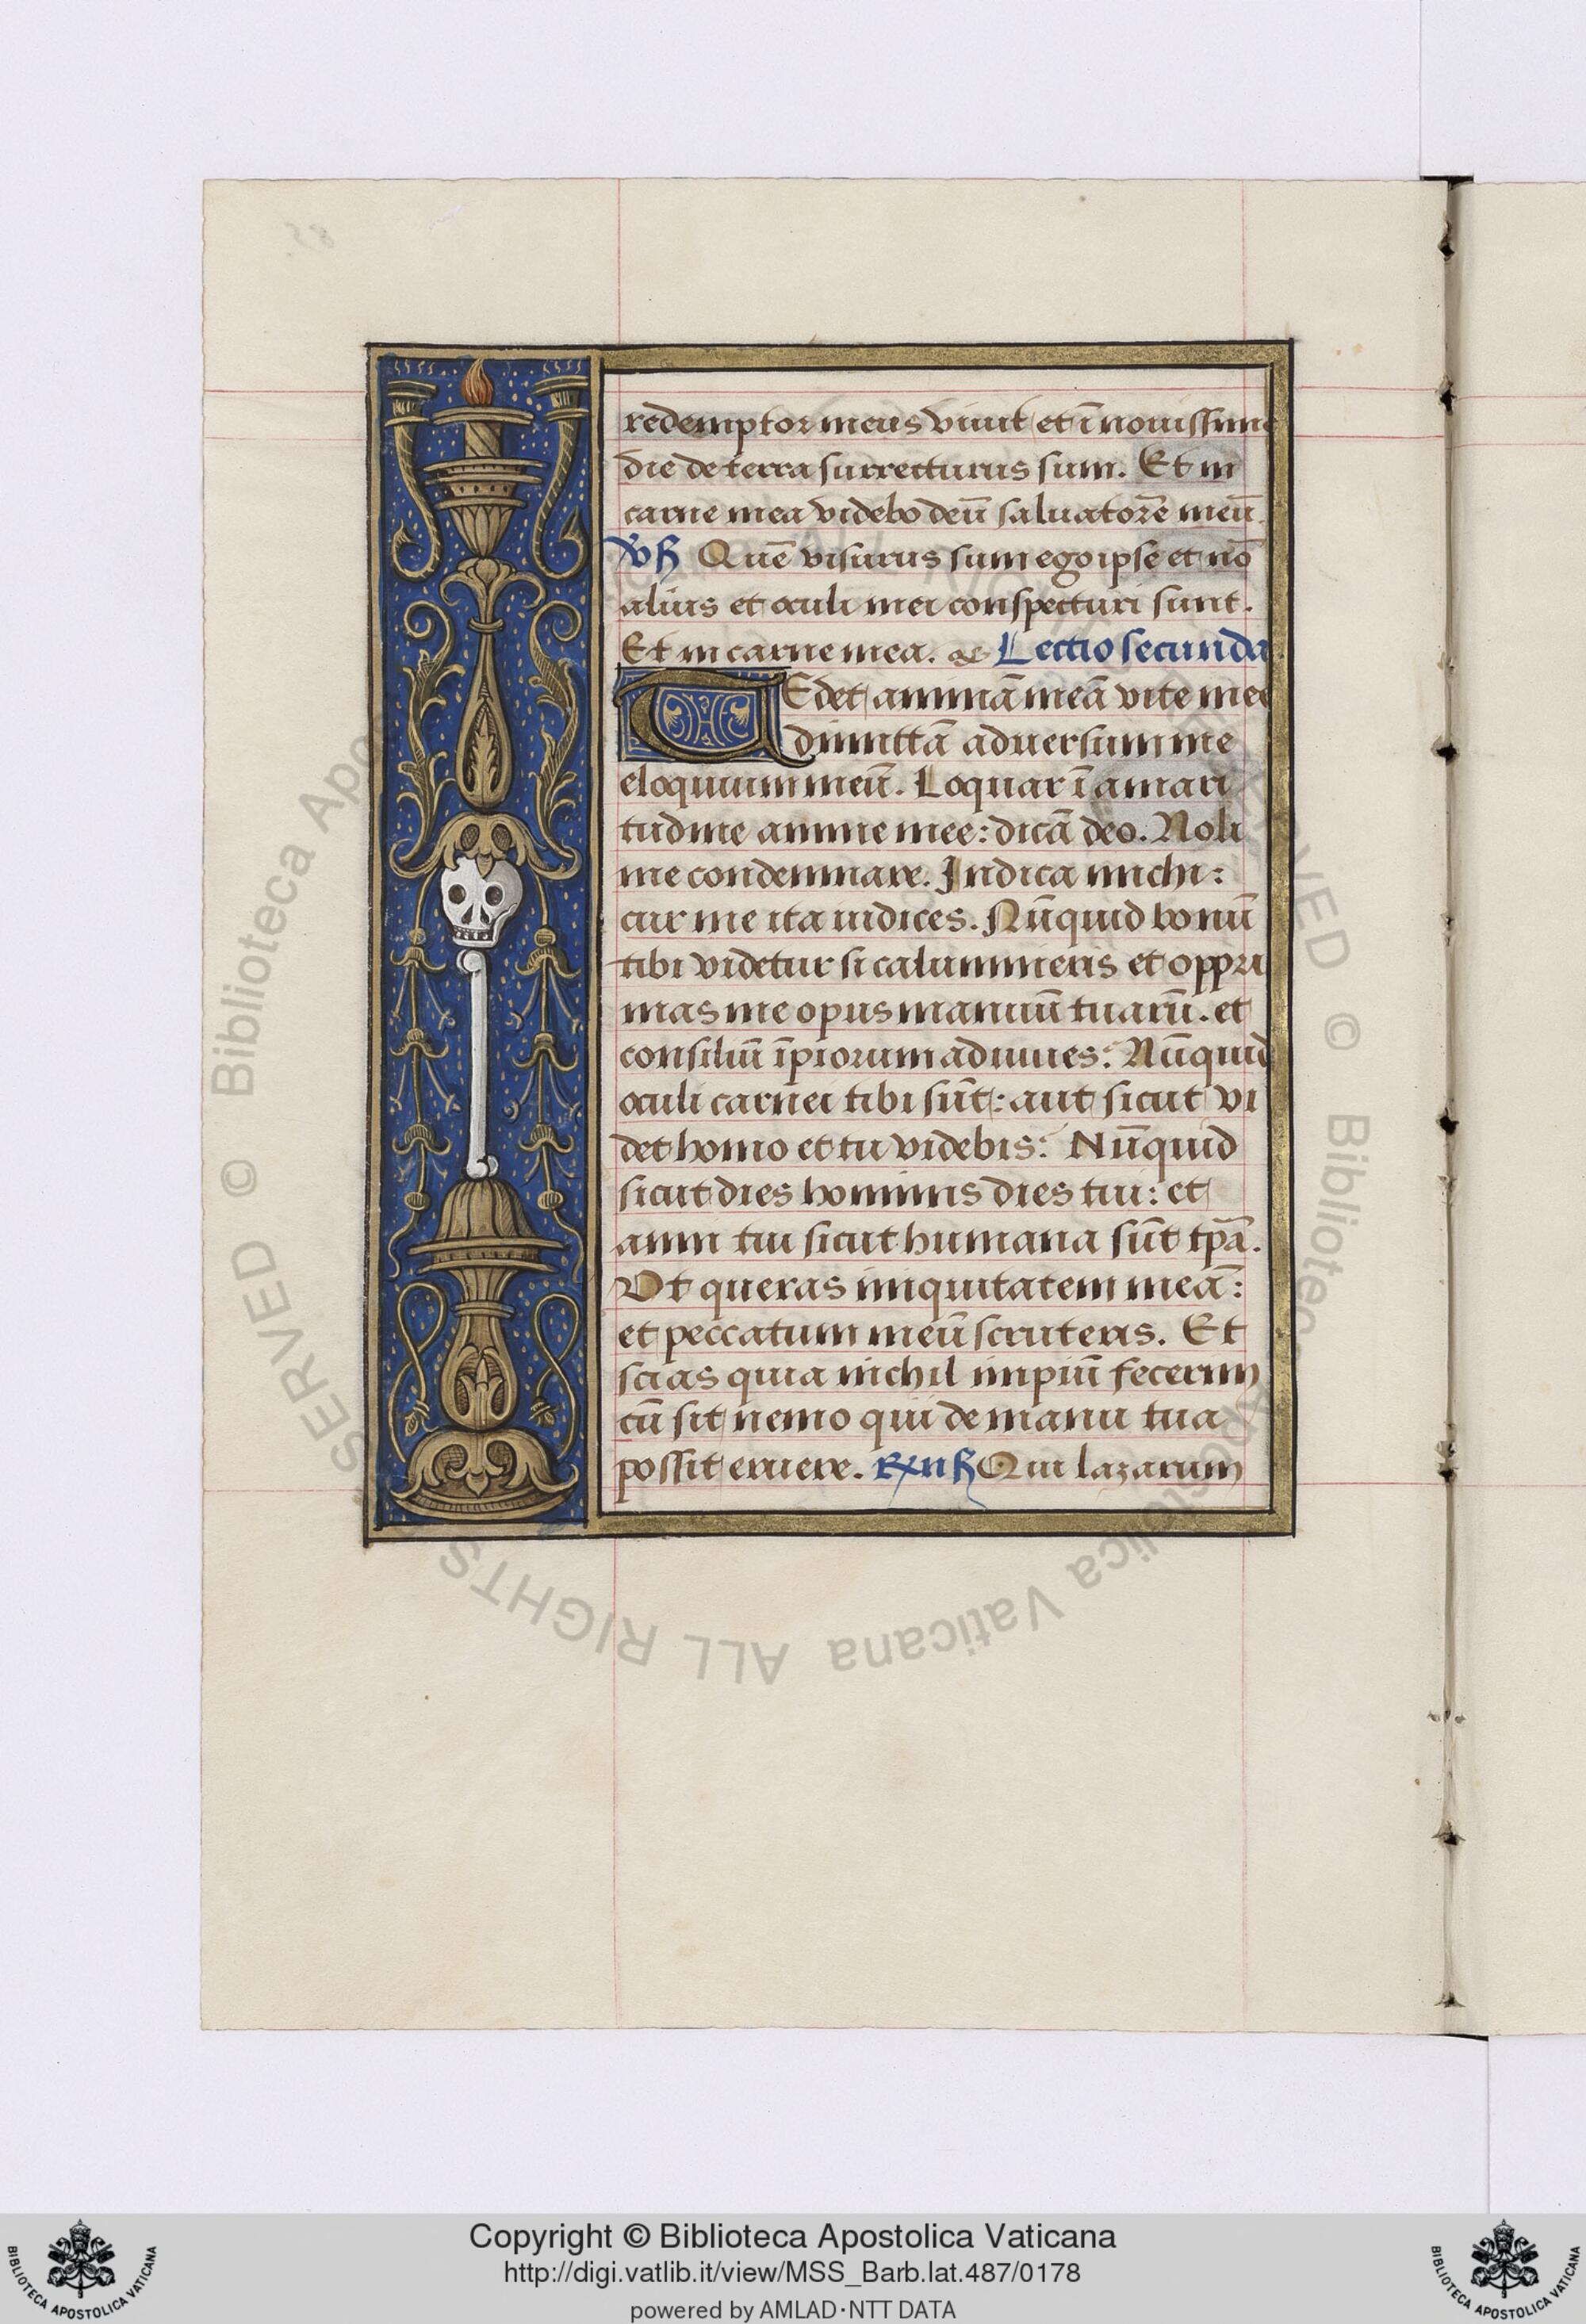 redemptor meus viuit et ī nouissimo
die de terra surrecturus sum. Et in
carne mea videbo deū saluatorē meū.
Vs Quē visurus sum ego ipse et nō
alius et oculi mei conspecturi sunt.
Et in carne mea. &c Lectio secunda
TEdet animā meā vite mee
dimittā aduersum me
eloquium meū. Loquar ī amari
tudine anime mee: dicā deo. Noli
me condemnare. Indica michi:
cur me ita iudices. Nūquid bonū
tibi videtur si calumnieris et oppri
mas me opus manuū tuarū. et
consiliū īpiorum adiuues: Nūquid
oculi carnei tibi sūt: aut sicut vi
det homo et tu videbis: Nūquid
sicut dies hominis dies tui: et
anni tui sicut humana sūt tpā.
Vt queras iniquitatem meā:
et peccatum meū scruteris. Et
scias quia nichil impiū fecerim
cū sit nemo qui de manu tua
possit eruere. Qui lazarum
© Biblioteca Apostolica Vaticana ALL RIGHTS RESERVED
Copyright © Biblioteca Apostolica Vaticana
http://digi.vatlib.it/view/MSS_Barb.lat.487/0178
powered by AMLAD·NTT DATA
BIBLIOTECA APOSTOLICA VATICANA
BIBLIOTECA APOSTOLICA VATICANA